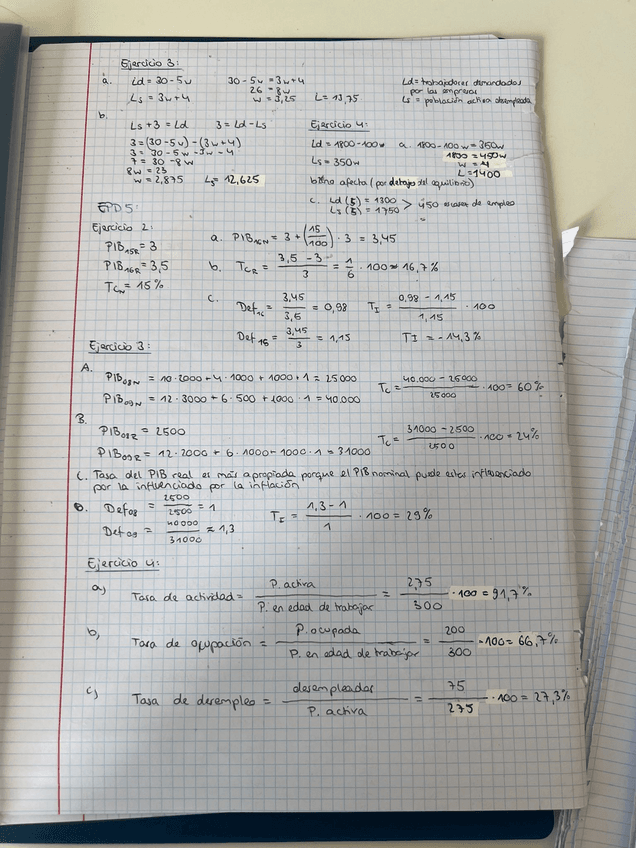 Ejercicio 3:
a. Ld = 30 - 5w 30 - 5w = 3w + 4 Ld = trabajadores demandados
26 = 8w por las empresas
Ls = 3w + 4 w = 3,25 L = 13,75 Ls = población activa desempleada
b.
Ls + 3 = Ld 3 = Ld - Ls Ejercicio 4:
3 = (30 - 5w) - (3w + 4) Ld = 1800 - 100w a. 1800 - 100w = 350w
3 = 30 - 5w - 3w - 4 1800 = 450w
7 = 30 - 8w Ls = 350w w = 4
8w = 23 L = 1400
w = 2,875 Ls = 12,625 b. no afecta (por debajo del equilibrio)
c. Ld (5) = 1300 > 450 escasez de empleo
Ls (5) = 1750
EPD 5:
Ejercicio 2:
PIB15R = 3 a. PIB16N = 3 + (15/100) · 3 = 3,45
PIB16R = 3,5 b. TCR = (3,5 - 3)/3 = 1/6 · 100 = 16,7%
TCN = 15%
c. Def16 = 3,45/3,5 = 0,98 TI = (0,98 - 1,15)/1,15 · 100
Def15 = 3,45/3 = 1,15 TI = -14,3%
Ejercicio 3:
A.
PIB08N = 10 · 2000 + 4 · 1000 + 1000 · 1 = 25000 Tc = (40.000 - 25000)/25000 · 100 = 60%
PIB09N = 12 · 3000 + 6 · 500 + 1000 · 1 = 40.000
B.
PIB08R = 2500 Tc = (31000 - 2500)/2500 · 100 = 24%
PIB09R = 12 · 2000 + 6 · 1000 - 1000 · 1 = 31000
C. Tasa del PIB real es más apropiada porque el PIB nominal puede estar influenciado
por la influenciada por la inflación
D. Def08 = 2500/2500 = 1 TI = (1,3 - 1)/1 · 100 = 29%
Def09 = 40000/31000 ≈ 1,3
Ejercicio 4:
a) Tasa de actividad = P. activa/P. en edad de trabajar = 275/300 · 100 = 91,7%
b) Tasa de ocupación = P. ocupada/P. en edad de trabajar = 200/300 · 100 = 66,7%
c) Tasa de desempleo = desempleados/P. activa = 75/275 · 100 = 27,3%